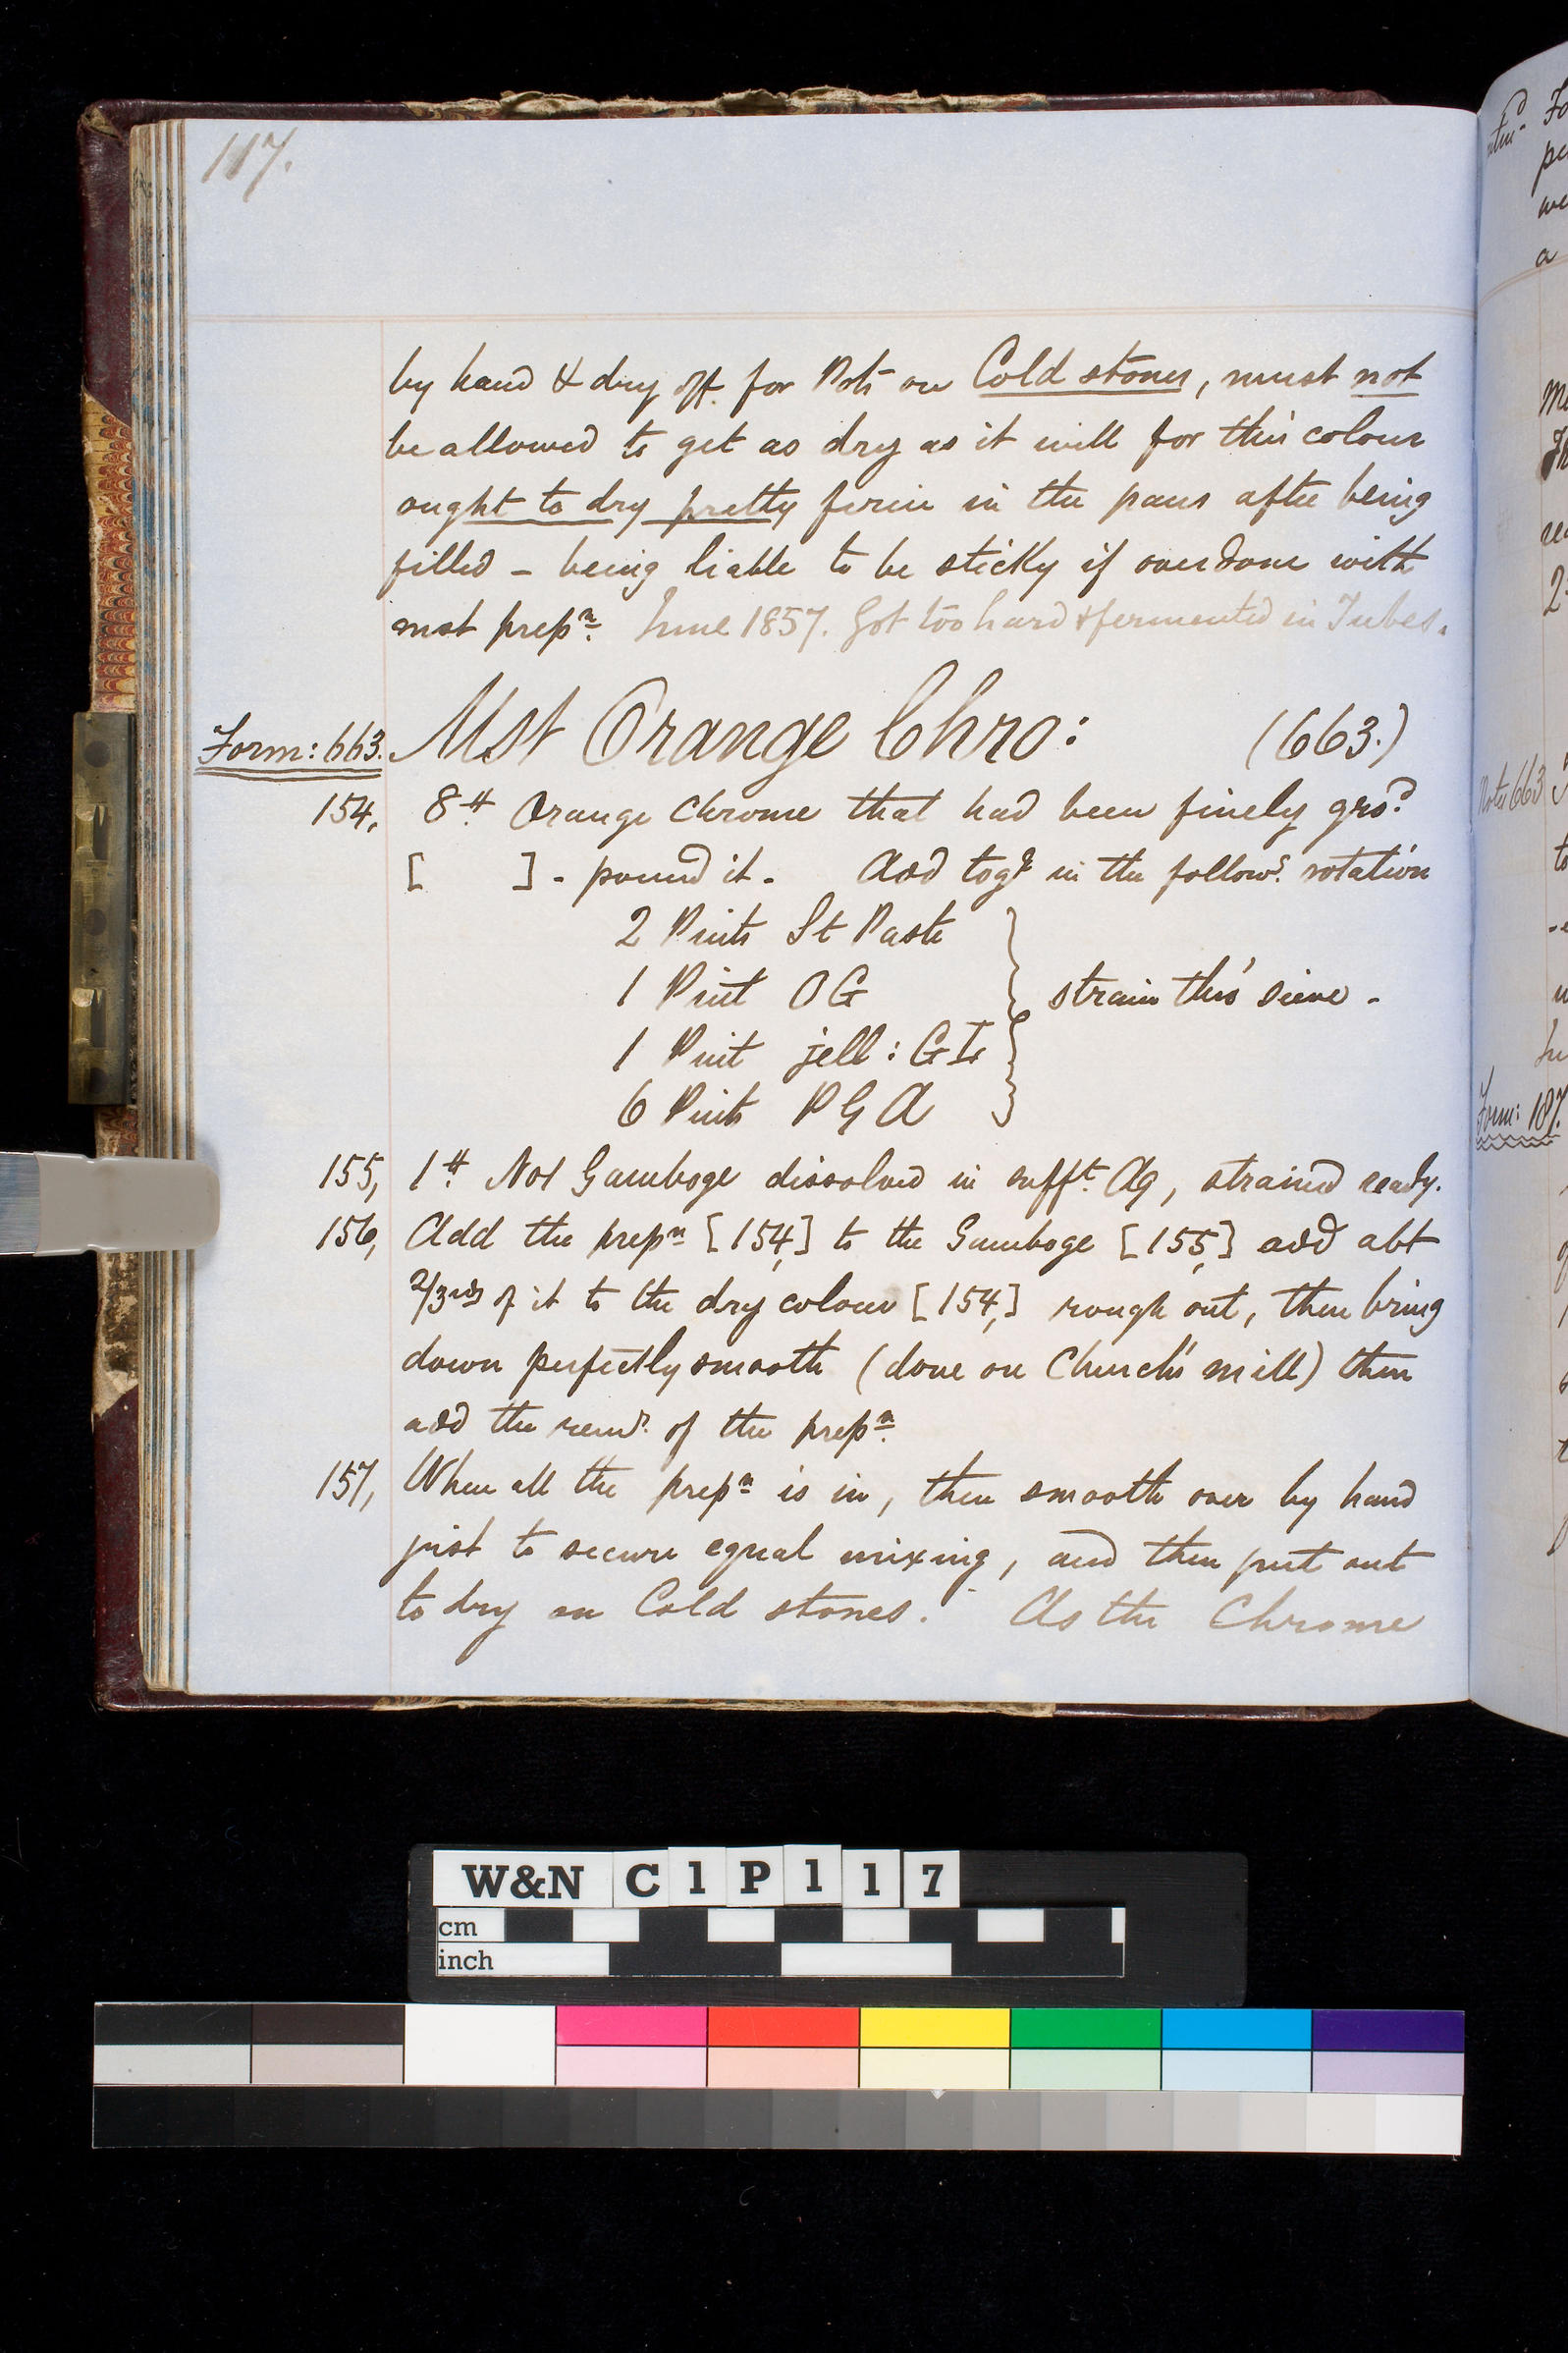 117.
by hand & dry off for Pots on Cold stones, must not
be allowed to get as dry as it will for this colour
ought to dry pretty firm in the pans after being
filled - being liable to be sticky if overdone with
mst prepn. June 1857. Got too hard & fermented in Tubes.
Form: 663. Mst Orange Chro: (663.)
154, 8 lb Orange Chrome that had been finely grod.
[ ] - pound it. Add togr in the followg. rotation
2 Pints St Paste
1 Pint OG
strain thro' sieve -
1 Pint jell: GI
6 Pints PGA
155, 1 lb No1 Gamboge dissolved in sufft. Aq, strained ready.
156, Add the prepn [154,] to the Gamboge [155,] add abt
2/3rds of it to the dry colour [154,] rough out, then bring
down perfectly smooth (done on Church's mill) then
add the remr. of the prepn.
157, When all the prepn is in, then smooth over by hand
just to secure equal mixing, and then put out
to dry on Cold stones. As the Chrome
Form: 187.
W&N C1P117
cm
inch